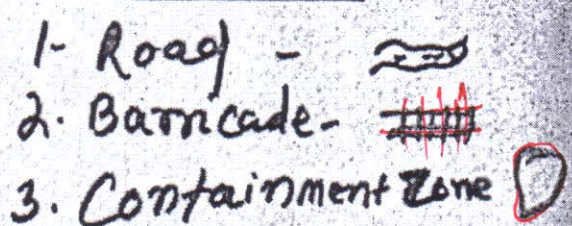 1- Road -
2. Barricade-
3. Containment Zone